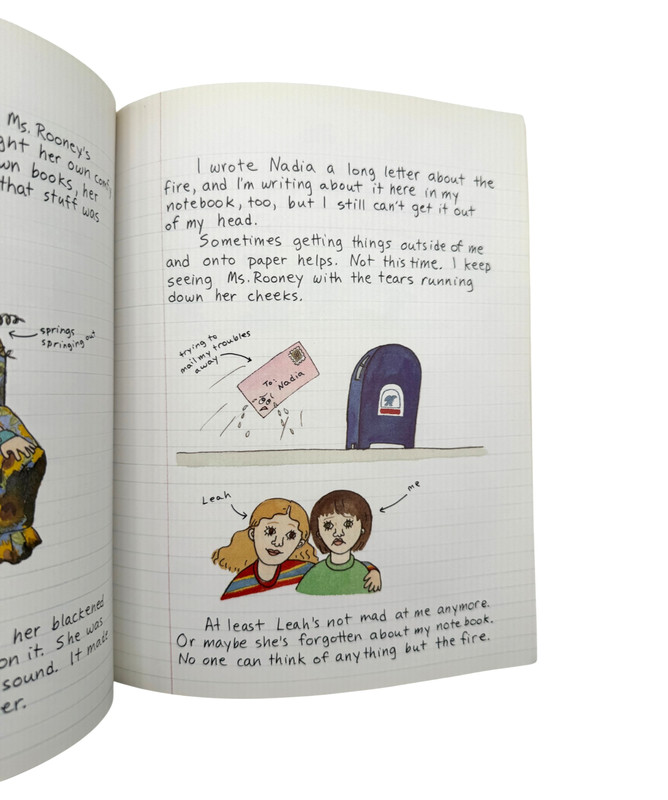 Ms. Rooney's
ght her own comfy
wn books, her
that stuff was
springs
springing out
her blackened
on it. She was
sound. It made
er.
I wrote Nadia a long letter about the
fire, and I'm writing about it here in my
notebook, too, but I still can't get it out
of my head.
Sometimes getting things outside of me
and onto paper helps. Not this time. I keep
seeing Ms. Rooney with the tears running
down her cheeks.
trying to
mail my troubles
away
To:
Nadia
Leah
me
At least Leah's not mad at me anymore.
Or maybe she's forgotten about my notebook.
No one can think of anything but the fire.